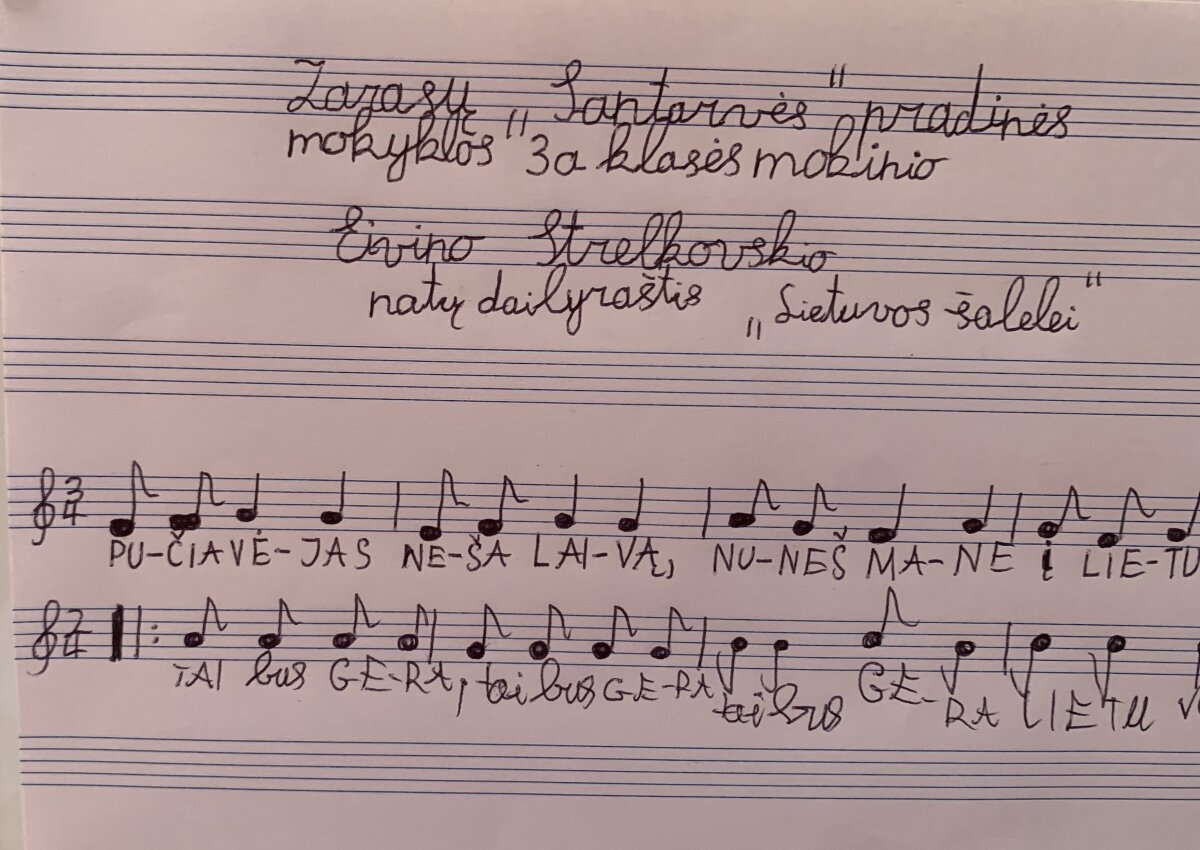 Zarasų „Santarvės" pradinės
mokyklos" 3a klasės mokinio
Eivino Strelkovskio
natų dailyraštis „Lietuvos šalelei"
3/4 PU-ČIA VĖ-JAS NE-ŠA LAI-VĄ, NU-NEŠ MA-NE Į LIE-TU
2/4 TAI bus GE-RA, tai bus GE-RA tai bus GE-RA LIETU